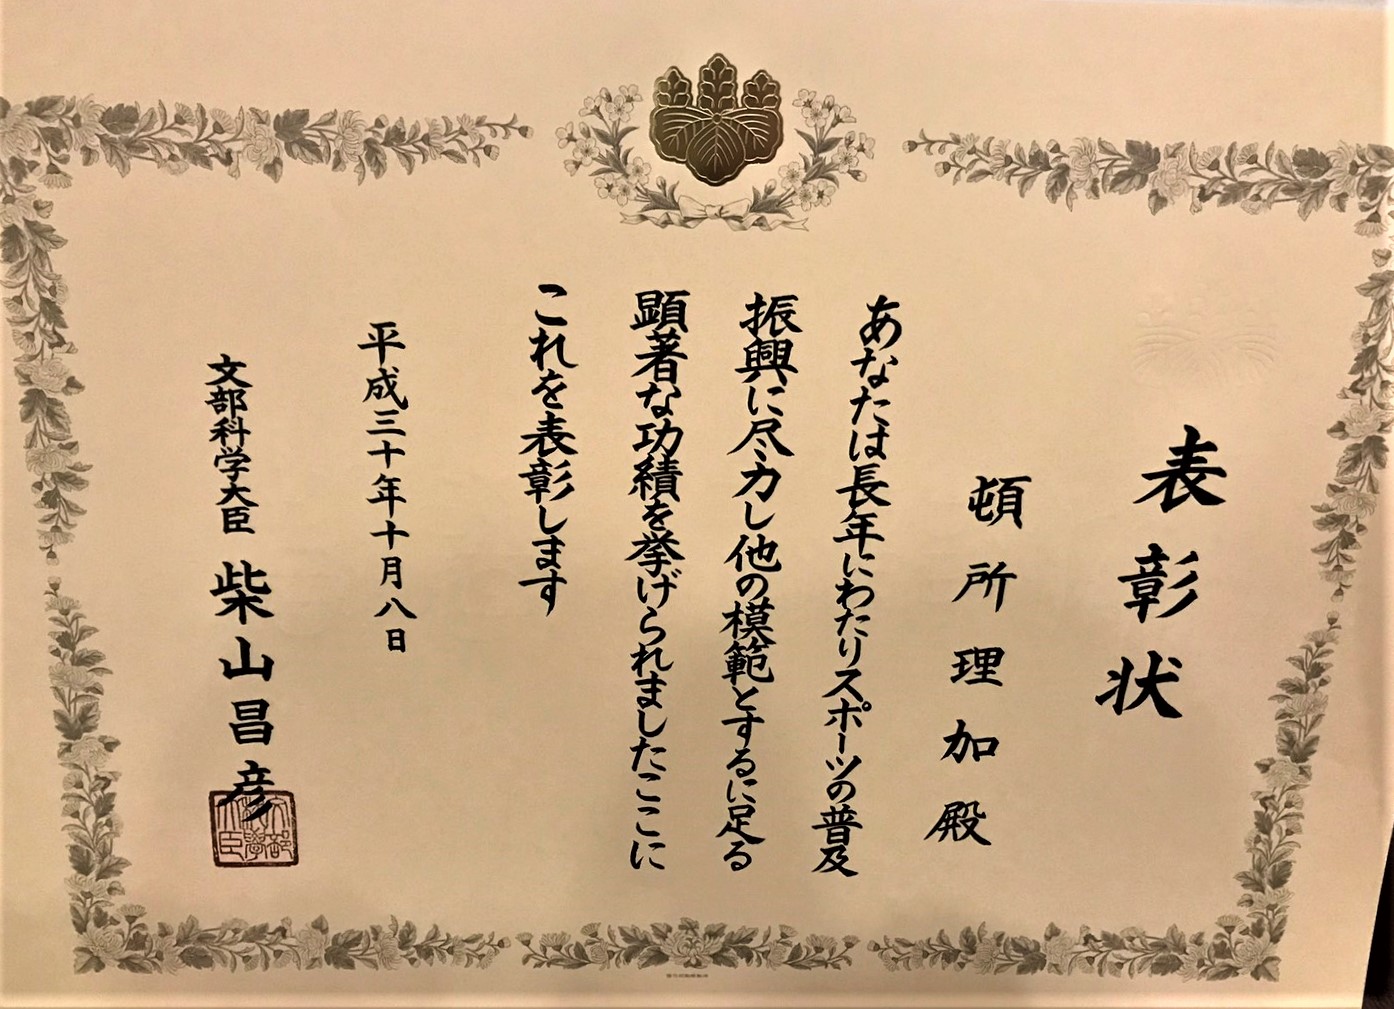 表彰状
頓所理加殿
あなたは長年にわたりスポーツの普及
振興に尽力し他の模範とするに足る
顕著な功績を挙げられましたここに
これを表彰します
平成三十年十月八日
文部科学大臣 柴山昌彦